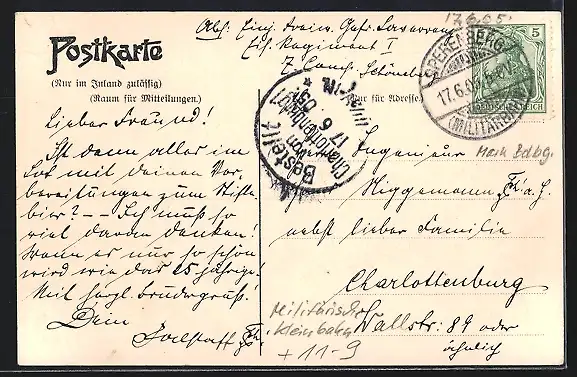 17.6.05.
Abs: Einj. Freiw. Gefr.
Eis. Regiment I
7. Comp. Schöneberg
Postkarte
(Nur im Inland zulässig)
(Raum für Mitteilungen.)
Nur für Adresse.
SPERENBERG
17.6.05
(MILITÄRB.)
5
DEUTSCHES REICH
Bestellt
vom
Charlottenburg
17 6 05
Lieber Freund!
Ist denn alles im
Lot mit deinen Vor-
bereitungen zum Stifts-
bier? – – Ich muß so
viel daran denken!
Wenn es nur so schön
wird wie das 25 jährige.
Mit herzl. Brudergruß!
Dein
Falstaff
Herrn Ingenieur
Mark Bdbg.
Niggemann
nebst lieber Familie
Charlottenburg
Wallstr: 89 oder
ähnlich
Militärische
Kleinbahn
+ 11-9